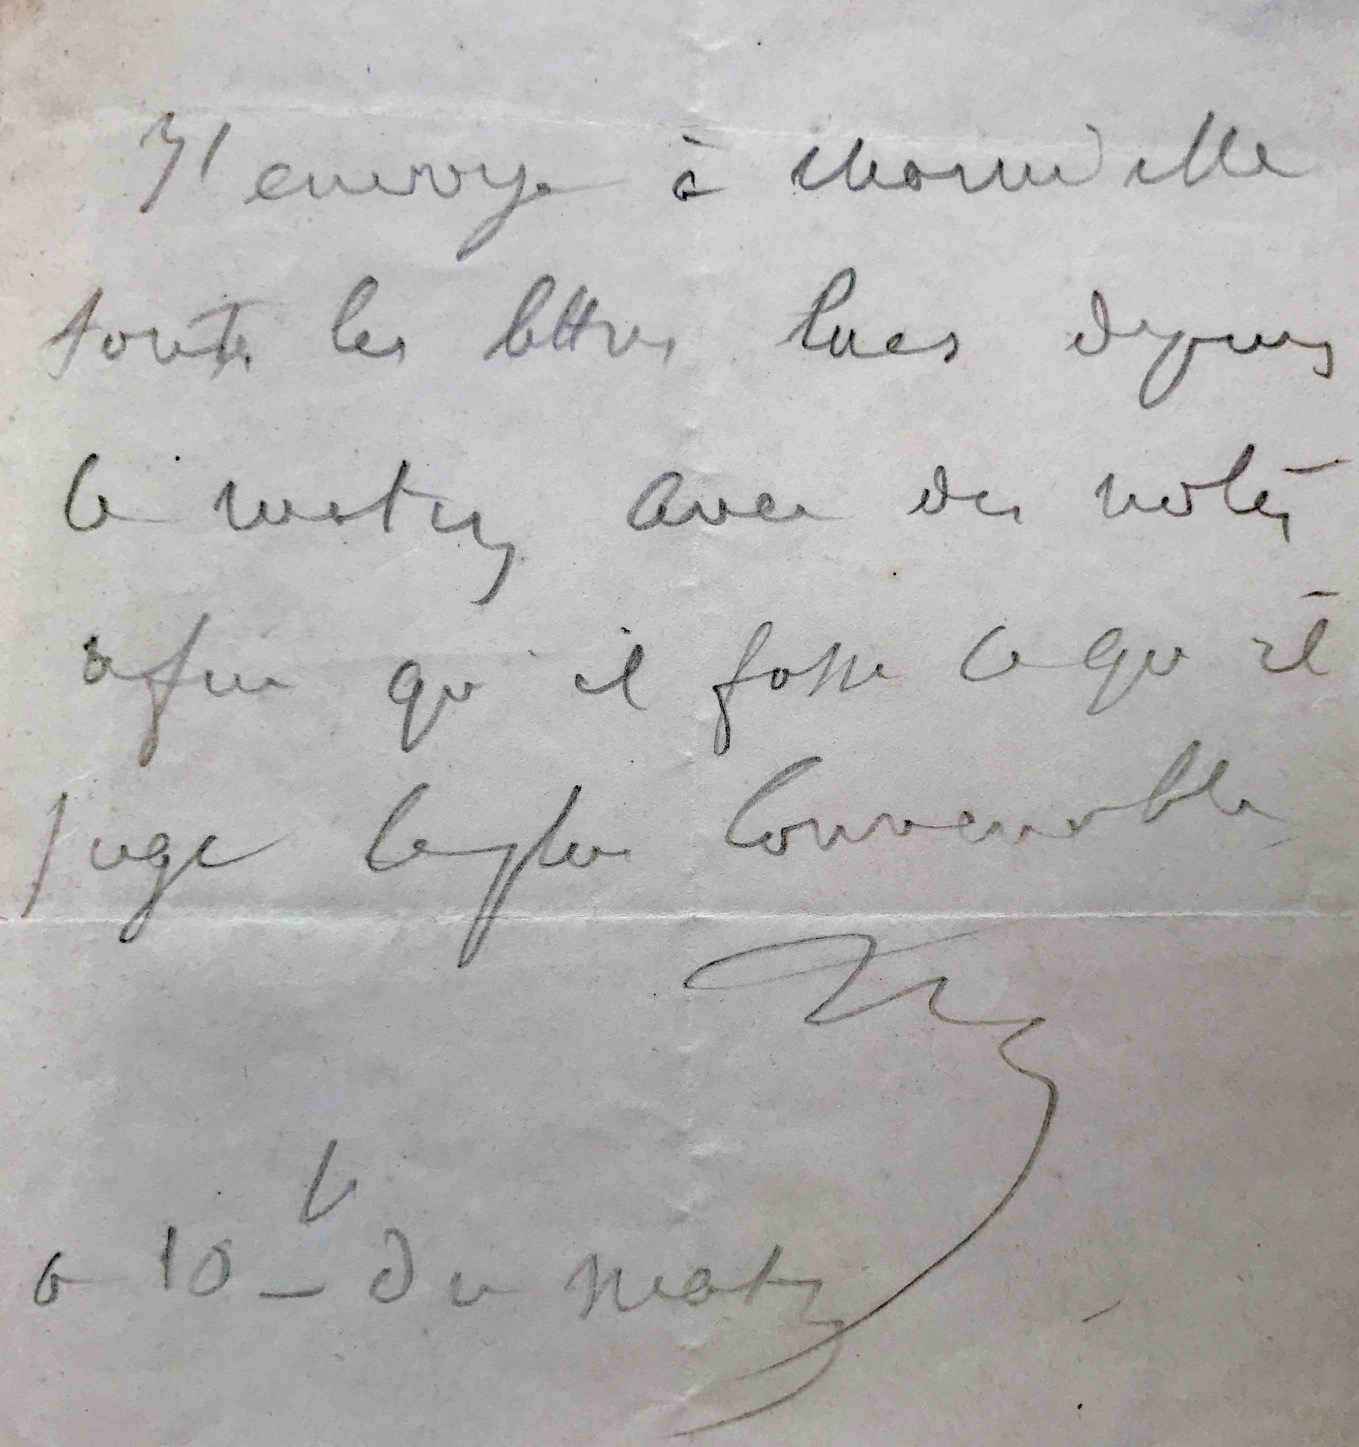 J'envoye à
toutes les lettres lues depuis
le matin avec des notes
afin qu'il fasse ce qu'il
juge le plus convenable
à 10 h du matin